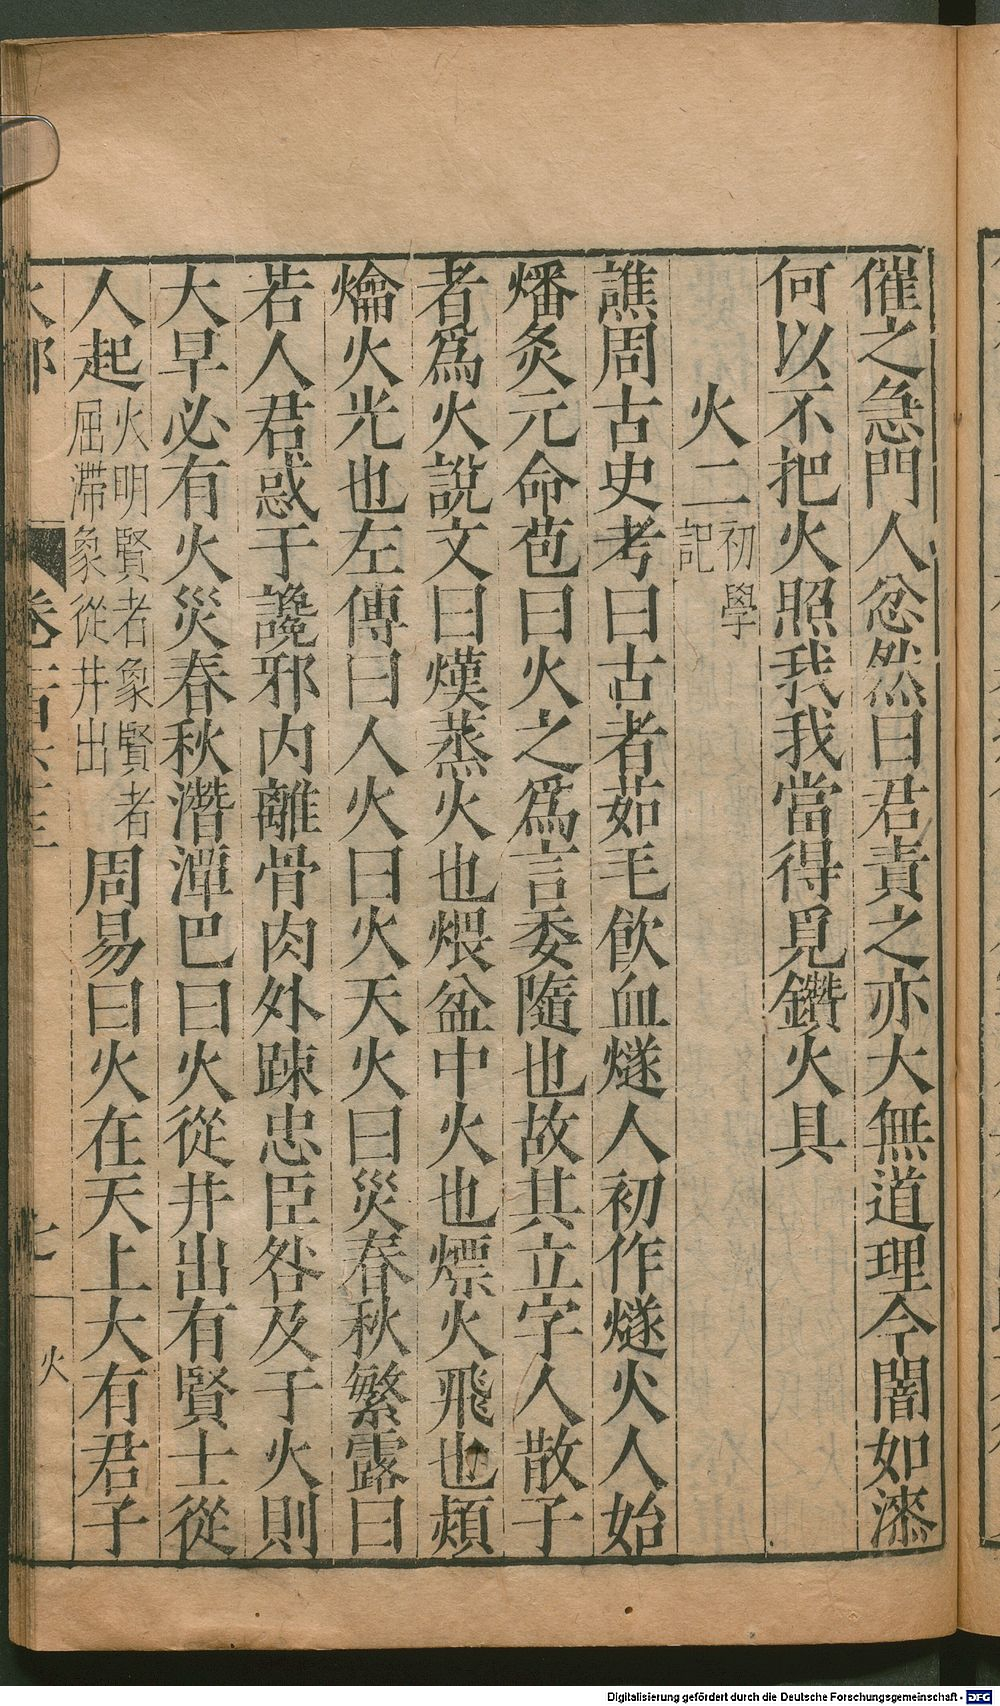 催之急門人忿然曰君責之亦大無道理今闇如漆
何以不把火照我我當得覓鑽火具
火二初學記
譙周古史考曰古者茹毛飲血燧人初作燧火人始
燔炙元命苞曰火之爲言委隨也故其立字人散子
者爲火說文曰熯蒸火也煨盆中火也熛火飛也熲
爚火光也左傳曰人火曰火天火曰災春秋繁露曰
若人君惑于讒邪内離骨肉外踈忠臣咎及于火則
大旱必有火災春秋潛潭巴曰火從井出有賢士從
人起火明賢者象賢者屈滯象從井出周易曰火在天上大有君子
火部 卷一百 七 火
Digitalisierung gefördert durch die Deutsche Forschungsgemeinschaft - DFG